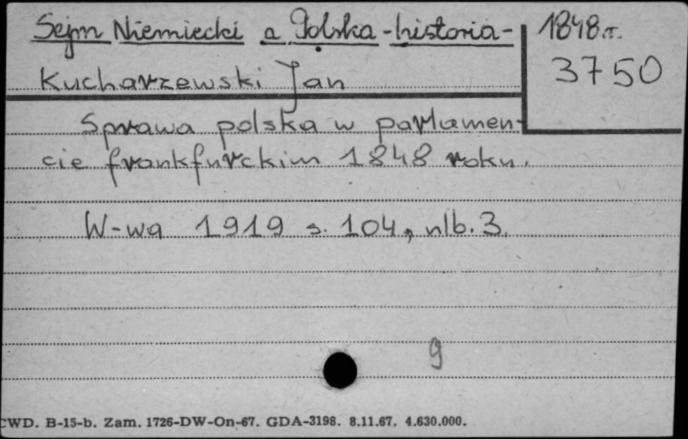 Sejm Niemiecki a Polska - historia - 1848 r.
3750
Kucharzewski Jan
Sprawa polska w parlamen-
cie frankfurckim 1848 roku.
W-wa 1919 s. 104, nlb. 3.
9
CWD. B-15-b. Zam. 1726-DW-On-67. GDA-3198. 8.11.67. 4.630.000.